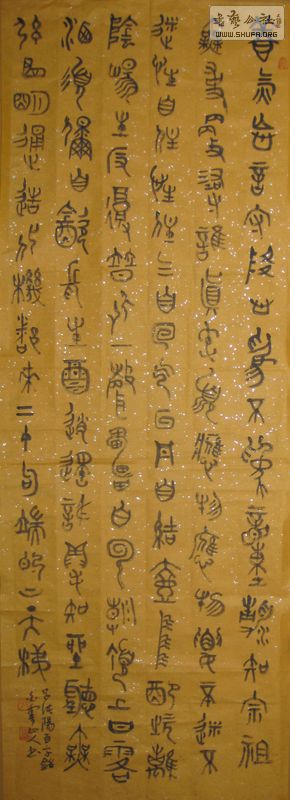 養氣忘言守降心為不為動靜知宗祖
無事更尋誰真常須應物應物要不迷不
迷性自住性住氣自回氣回丹自結壺中配坎離
陰陽生反復普化一聲雷白雲朝頂上甘露
灑須彌自飲長生酒逍遙誰得知坐聽無
弦曲明通造化機都來二十句端的上天梯
呂純陽百字銘
山人書
書藝公社
WWW.SHUFA.ORG